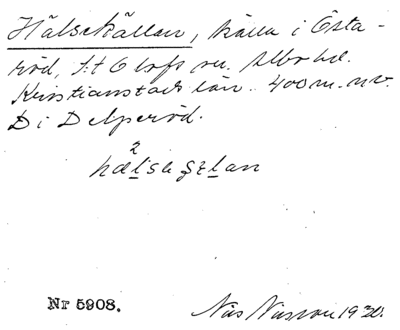 Hälsekällan, källa i Östa-
röd, S:t Olofs sn. Albo hd.
Kristianstads län. 400 m. nv.
D i Delperöd.
2
hælsɩ ʂɛlan
Nr 5908.
Nils Nilsson 1930.